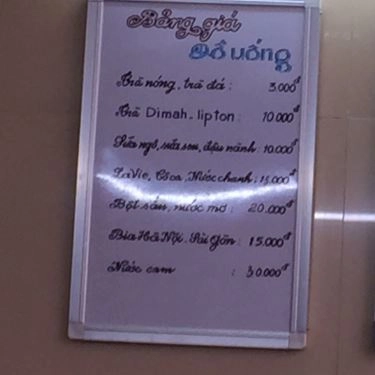 Bảng giá
Đồ uống
Trà nóng, trà đá: 3.000đ
Trà Dimah, lipton: 10.000đ
Sữa ngô, sữa sen, đậu nành: 10.000đ
LaVie, Coca, Nước chanh: 15.000đ
Bột sắn, nước mơ: 20.000đ
Bia Hà Nội, Sài Gòn: 15.000đ
Nước cam : 30.000đ